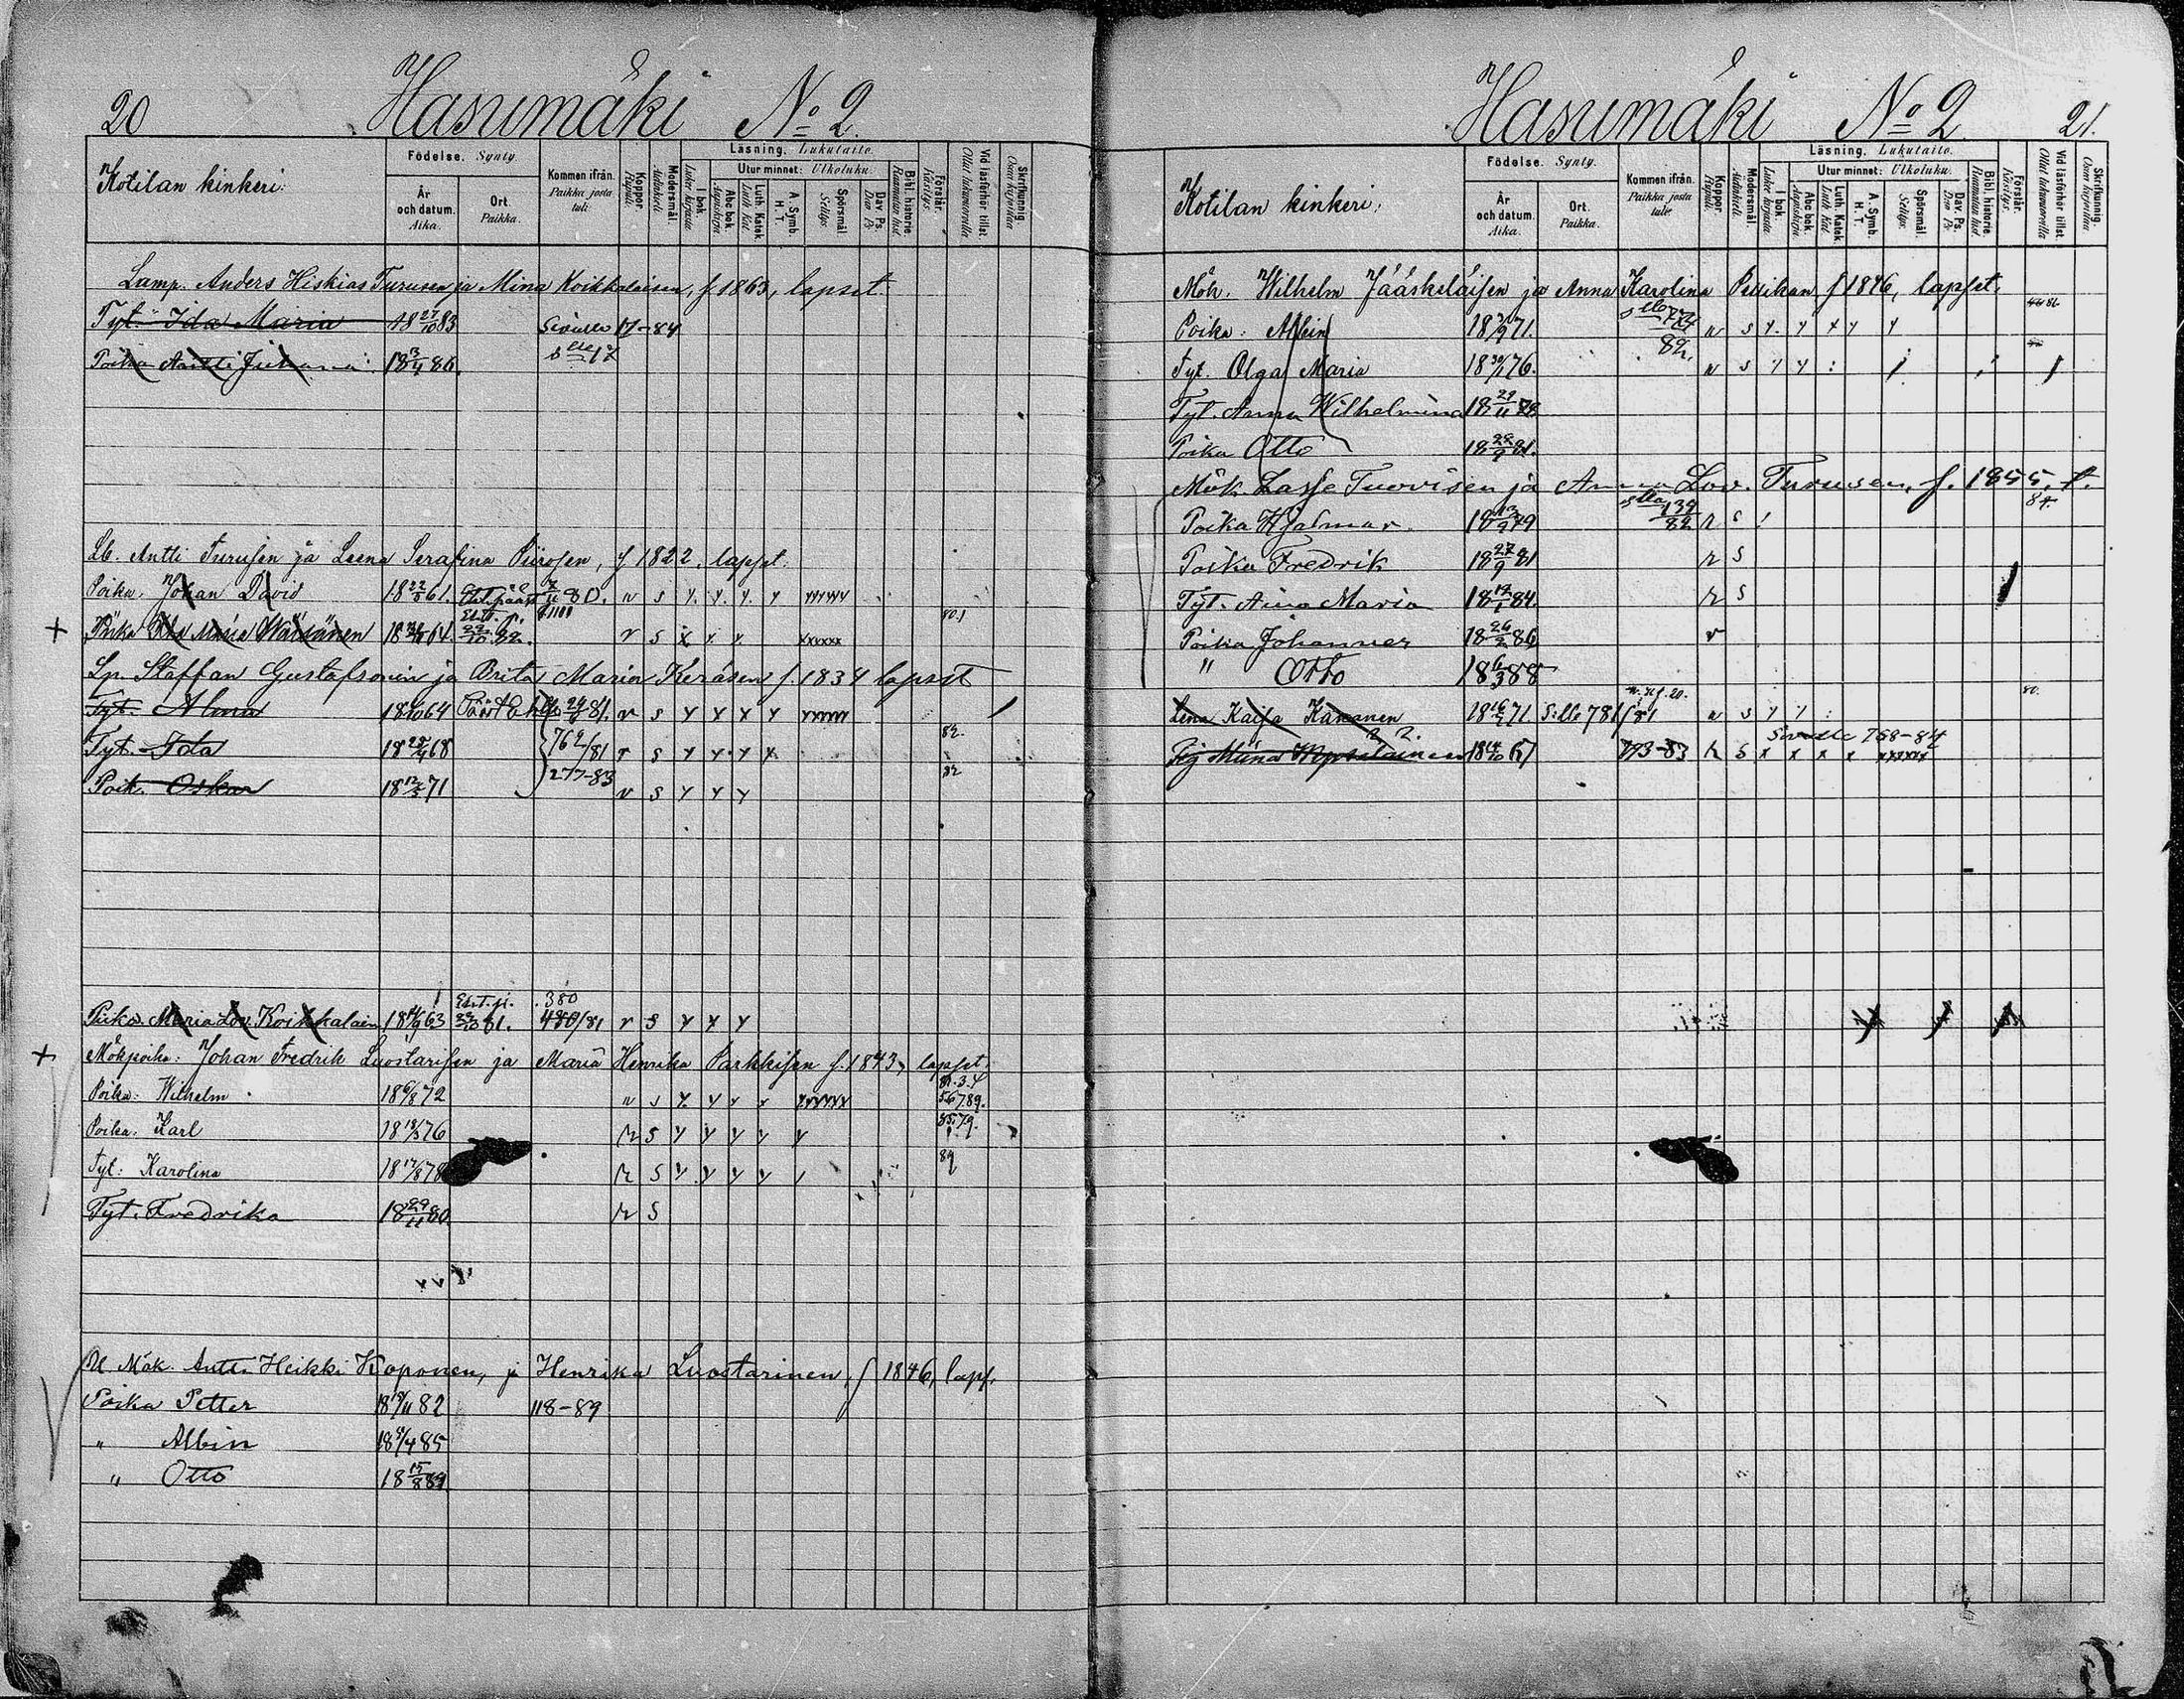 20
Hasumäki No 2.
Kotilan kinkeri:
Födelse. Synty.
År och datum. Aika.
Ort. Paikka.
Kommen ifrån. Paikka josta tuli.
Koppor. Rupuli.
Modersmål. Äidinkieli.
Läsning. Lukutaito.
I bok. Lukee kirjasta
Utur minnet: Ulkoluku.
Abc bok. Aapiskirja
Luth. Katek. Luth. Kat.
A. Symb. H. T.
Spörsmål. Selitys.
Dav. Ps. Dav. Ps.
Bibl. historie. Raamatun hist.
Förstår. Käsitys.
Vid läsförhör tillst. Ollut lukuvuoroilla
Skrifkunnig. Osaa kirjoittaa
Lamp. Anders Hiskias Turusen ja Mina Koikkalaisen, f 1863, lapset.
Tyt. Ida Maria 18 27/10 83 Sivulle 17-84
Poika Antti Juhana 18 3/4 86. slle 17
Lb. Antti Turusen ja Leena Serafina Piirosen, f 1822. lapset.
Poika. Johan David 18 22/3 61. r s y. y. y. y
Piika Ida Maria Väisänen r s x x x. xxxxxx
Lp. Staffan Gustafsonin ja Brita Maria Keräsen f. 1834 lapset
Tyt. Alma r s y y x y
Tyt. Ida 18 28/4 68 762/81 r s y y y x 82.
Poik. Oskar 18 12/3 71 277-83 r s y y y 82
380
Piika. Maria Lov. Koikkalain 480/81 r s y x y
Mökpoika: Johan Fredrik Luostarisen ja Maria Henrika Parkkisen f. 1843, lapset.
Poika: Wilhelm 18 6/8 72
Poika. Karl 18 18/3 76 r s y y y y y
Tyt: Karolina 18 17/8 78 r s y y y y 89
Tyt. Fredrika 18 29/11 80 r s
Mök. Antti Heikki Koponen, ja Henrika Luostarinen, f 1846, laps.
Poika Petter 82 118-89
" Albin 85
" Otto 18 15/8 89
Hasumäki No 2
21.
Kotilan kinkeri:
Födelse. Synty.
År och datum. Aika.
Ort. Paikka.
Kommen ifrån. Paikka josta tuli.
Koppor. Rupuli.
Modersmål. Äidinkieli.
Läsning. Lukutaito.
I bok. Lukee kirjasta
Utur minnet: Ulkoluku.
Abc bok. Aapiskirja
Luth. Katek. Luth. Kat.
A. Symb. H. T.
Spörsmål. Selitys.
Dav. Ps. Dav. Ps.
Bibl. historie. Raamatun hist.
Förstår. Käsitys.
Vid läsförhör tillst. Ollut lukuvuoroilla
Skrifkunnig. Osaa kirjoittaa
Mök. Wilhelm Jääskeläisen ja Anna Karolina Pesikan f 1846, lapset.
Poika: Albin 71. s y. y y y y
82.
Tyt. Olga Maria 18 30/1 76. s y y
Tyt. Anna Wilhelmina
Poika Otto 81.
Mök Lasse Tuovisen ja Anna Lov. Turusen, f. 1855. l.
Poika Hjalmar. 18 13/9 79 slla 139/82 r s 84.
Poika Fredrik 18 27/9 81 r s
Tyt. Aina Maria 84 r s
Poika Johannes 18 26/2 86 r
" Otto 18 6/3 88
Lena Kaisa Kananen 71 S:lle 781/81 s y y 80.
Sivulle 768-84
Miina 67 793-83 r s x x x x xxxxxx